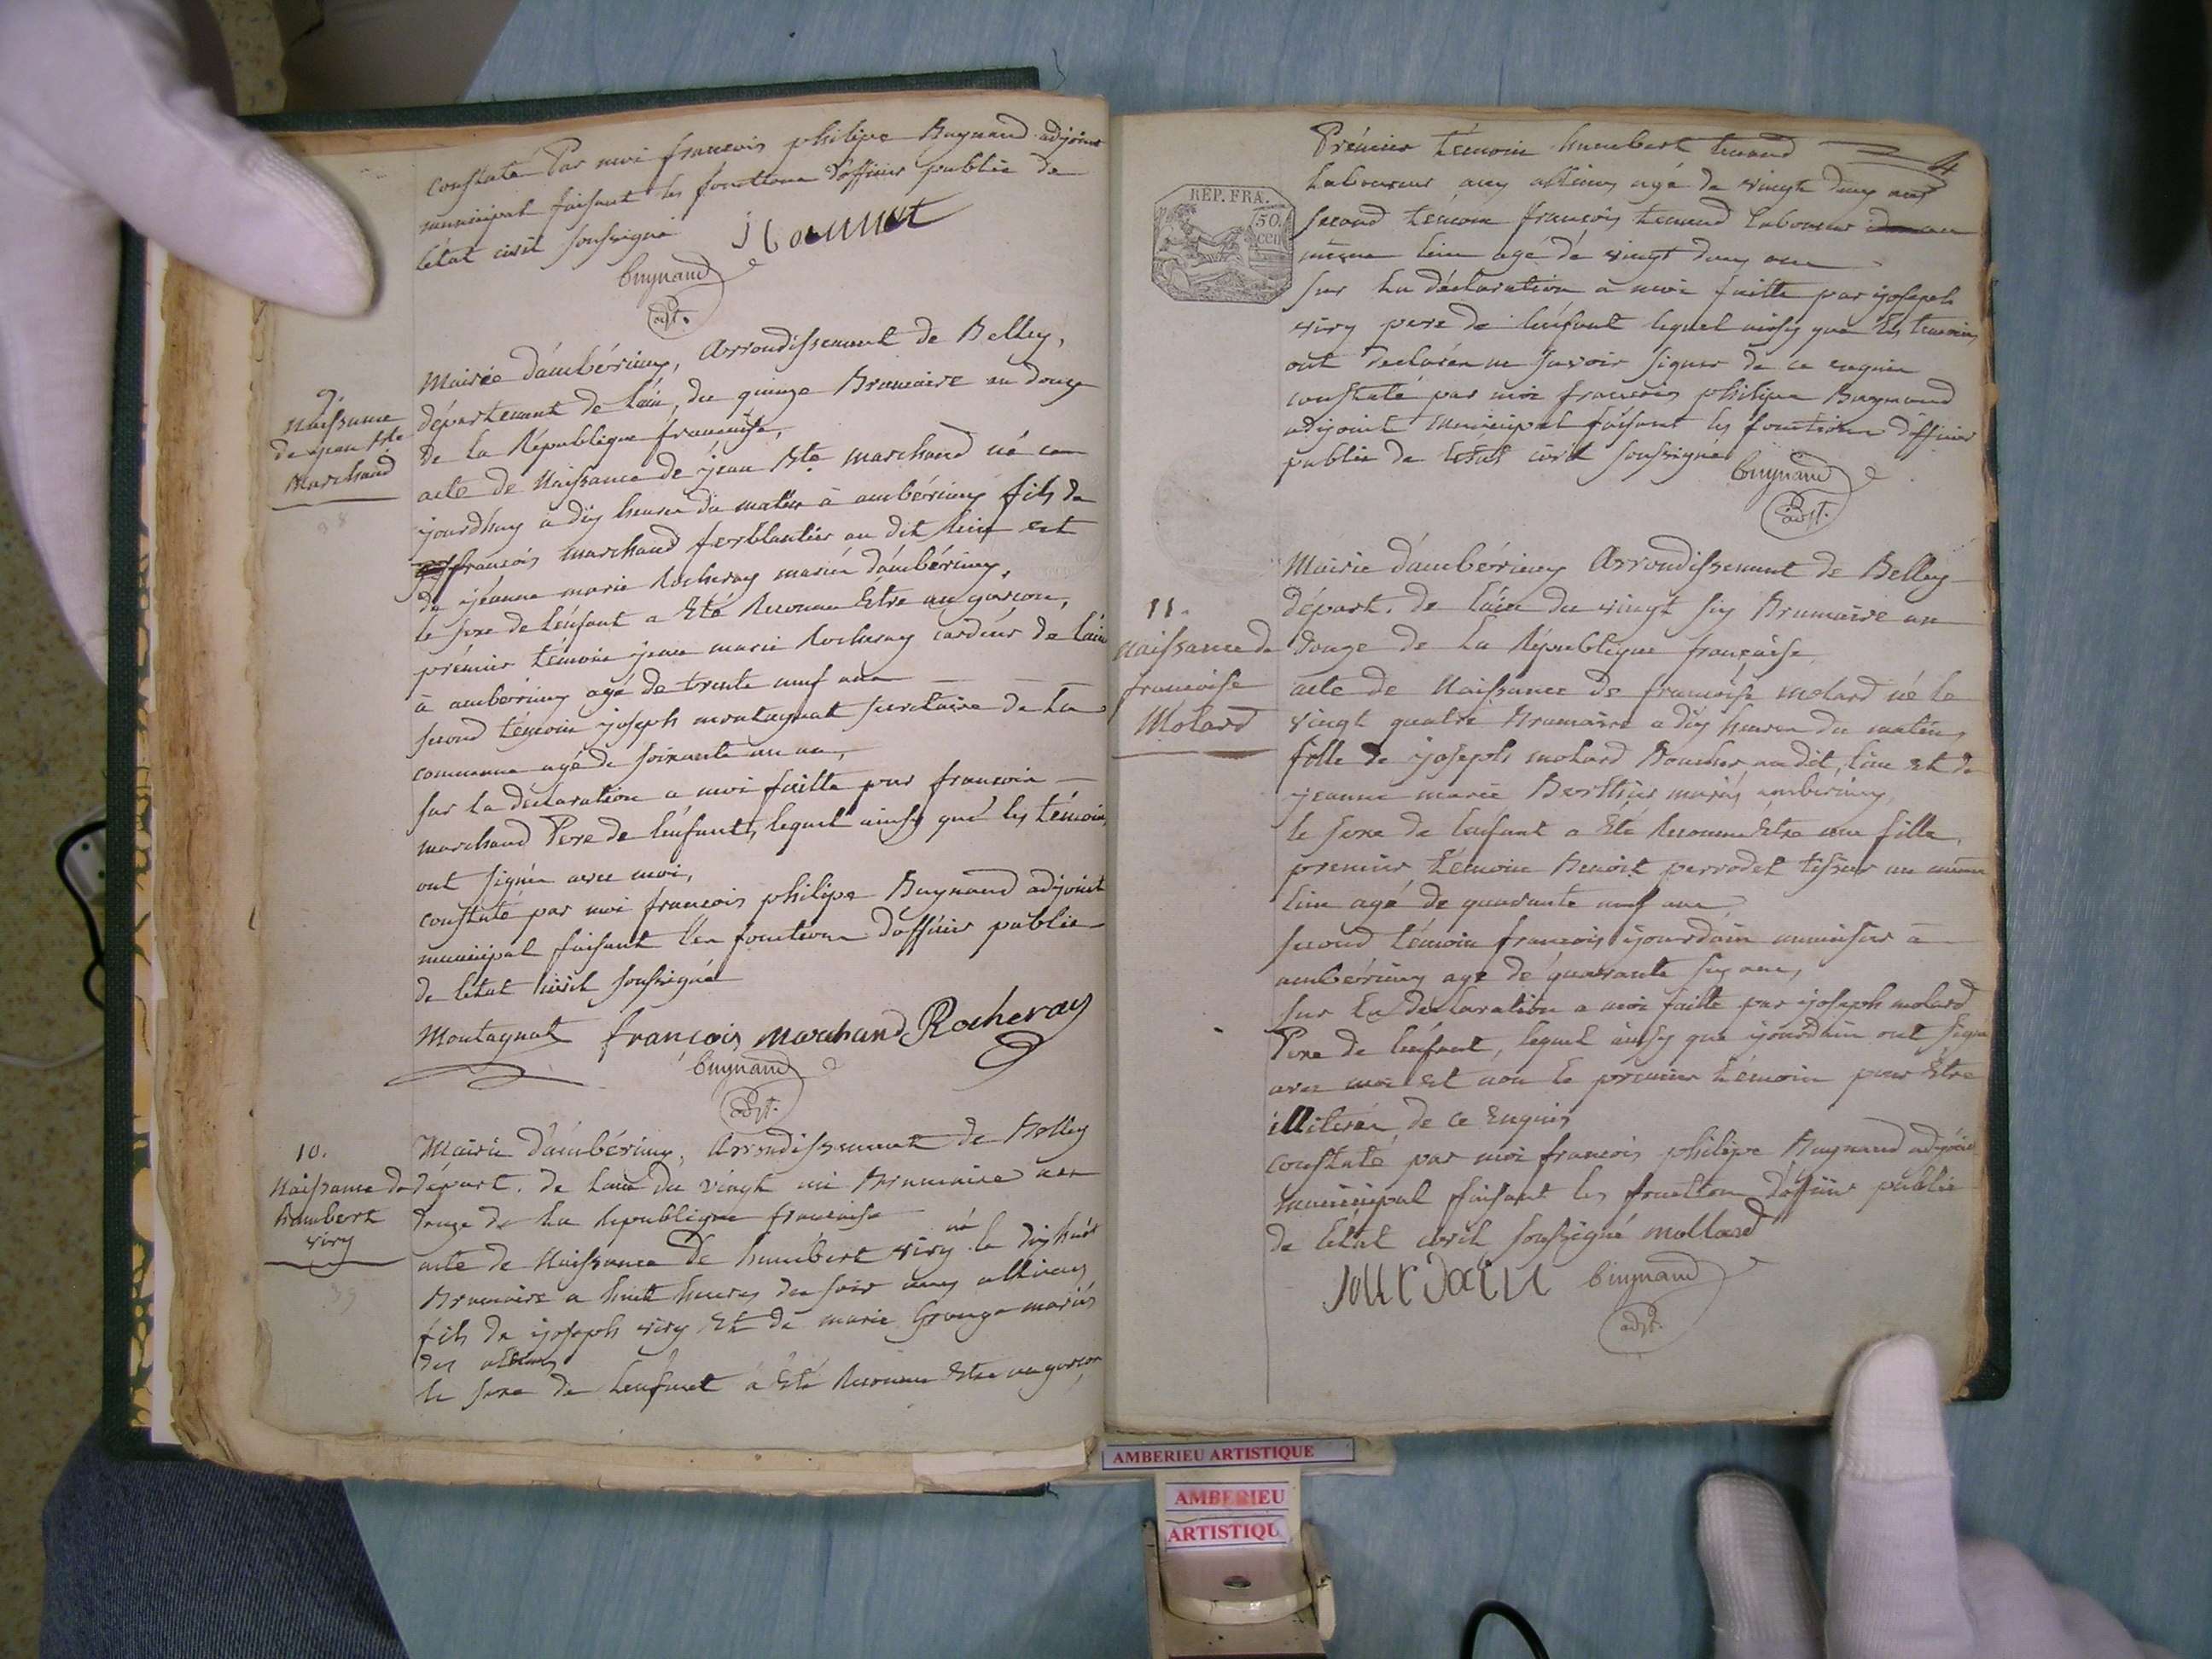 constaté Par moi francois philipe Buynand adjoint
municipal faisant les fonctions d'officier public de
letat civil soussigné
buynand
adjt.
9.
Naissance
de jean Bte
Marchand
Mairie d'ambérieux, Arrondissement de Belley,
département de l'ain, du quinze Brumaire an douze
de la République française,
acte de Naissance de jean Bte marchand né ce
jourdhuy a dix heures du matin à ambérieux fils de
francois marchand ferblantier au dit lieu et
de jeanne marie Rocheray mariés d'ambérieux,
le sexe de l'enfant a Eté Reconnu Estre un garcon,
prémier témoin jean marie Rocheray cardeur de laine
à ambérieux agé de trente neuf ans
second témoin joseph montagnat secretaire de la
commune agé de soixante un an,
sur la déclaration a moi faitte par francois
marchand Pere de l'enfant, lequel ainsy que les témoins
ont signés avec moi,
constaté par moi francois philipe Buynand adjoint
municipal faisant les fonctions d'officier public
de letat civil soussigné
Montagnat françois marchand Rocheray
buynand
adjt.
10.
Naissance de
humbert
viry
Mairie d'ambérieux, Arrondissement de Belley
départ. de l'ain du vingt un Brumaire an
douze de la République francaise
acte de Naissance de humbert viry né le dix huit
Brumaire a huit heures du soir aux allimes
fils de joseph viry Et de marie Grange mariés
des allimes
le sexe de l'enfant a Eté Reconnu Estre un garcon,
4
REP. FRA.
50
cen
Prémier témoin humbert tenand
laboureur aux allimes agé de vingt deux ans
second témoin françois tenand laboureur au
même lieu agé de vingt deux ans
sur la déclaration a moi faitte par joseph
viry pere de l'enfant lequel ainsy que les témoins
ont declarés ne savoir signer de ce enquis
constaté par moi francois philipe Buynand
adjoint municipal faisant les fonctions d'officier
public de l'état civil soussigné
buynand
adjt.
11.
Naissance de
francoise
Molard
Mairie d'ambérieux Arrondissement de Belley
départ. de l'ain du vingt six Brumaire an
douze de la République française,
acte de Naissance de francoise molard né le
vingt quatre Brumaire a dix heures du matin,
fille de joseph molard Boucher au dit lieu et de
jeanne marie Berthier mariés ambérieux,
le sexe de l'enfant a Eté Reconnu Estre une fille,
premier témoin Benoit perrodet tisseur au même
lieu agé de quarante neuf ans
second témoin francois jourdain menuisier a
ambérieux agé de quarante six ans,
sur la déclaration a moi faitte par joseph molard
Pere de l'enfant, lequel ainsy que jourdain ont signé
avec moi et non le premier témoin pour Etre
illiteré de ce Enquis
constaté par moi francois philipe Buynand adjoint
municipal faisant les fonctions d'officier public
de l'état civil soussigné mollard
jourdain buynand
adjt.
AMBERIEU ARTISTIQUE
AMBERIEU
ARTISTIQU